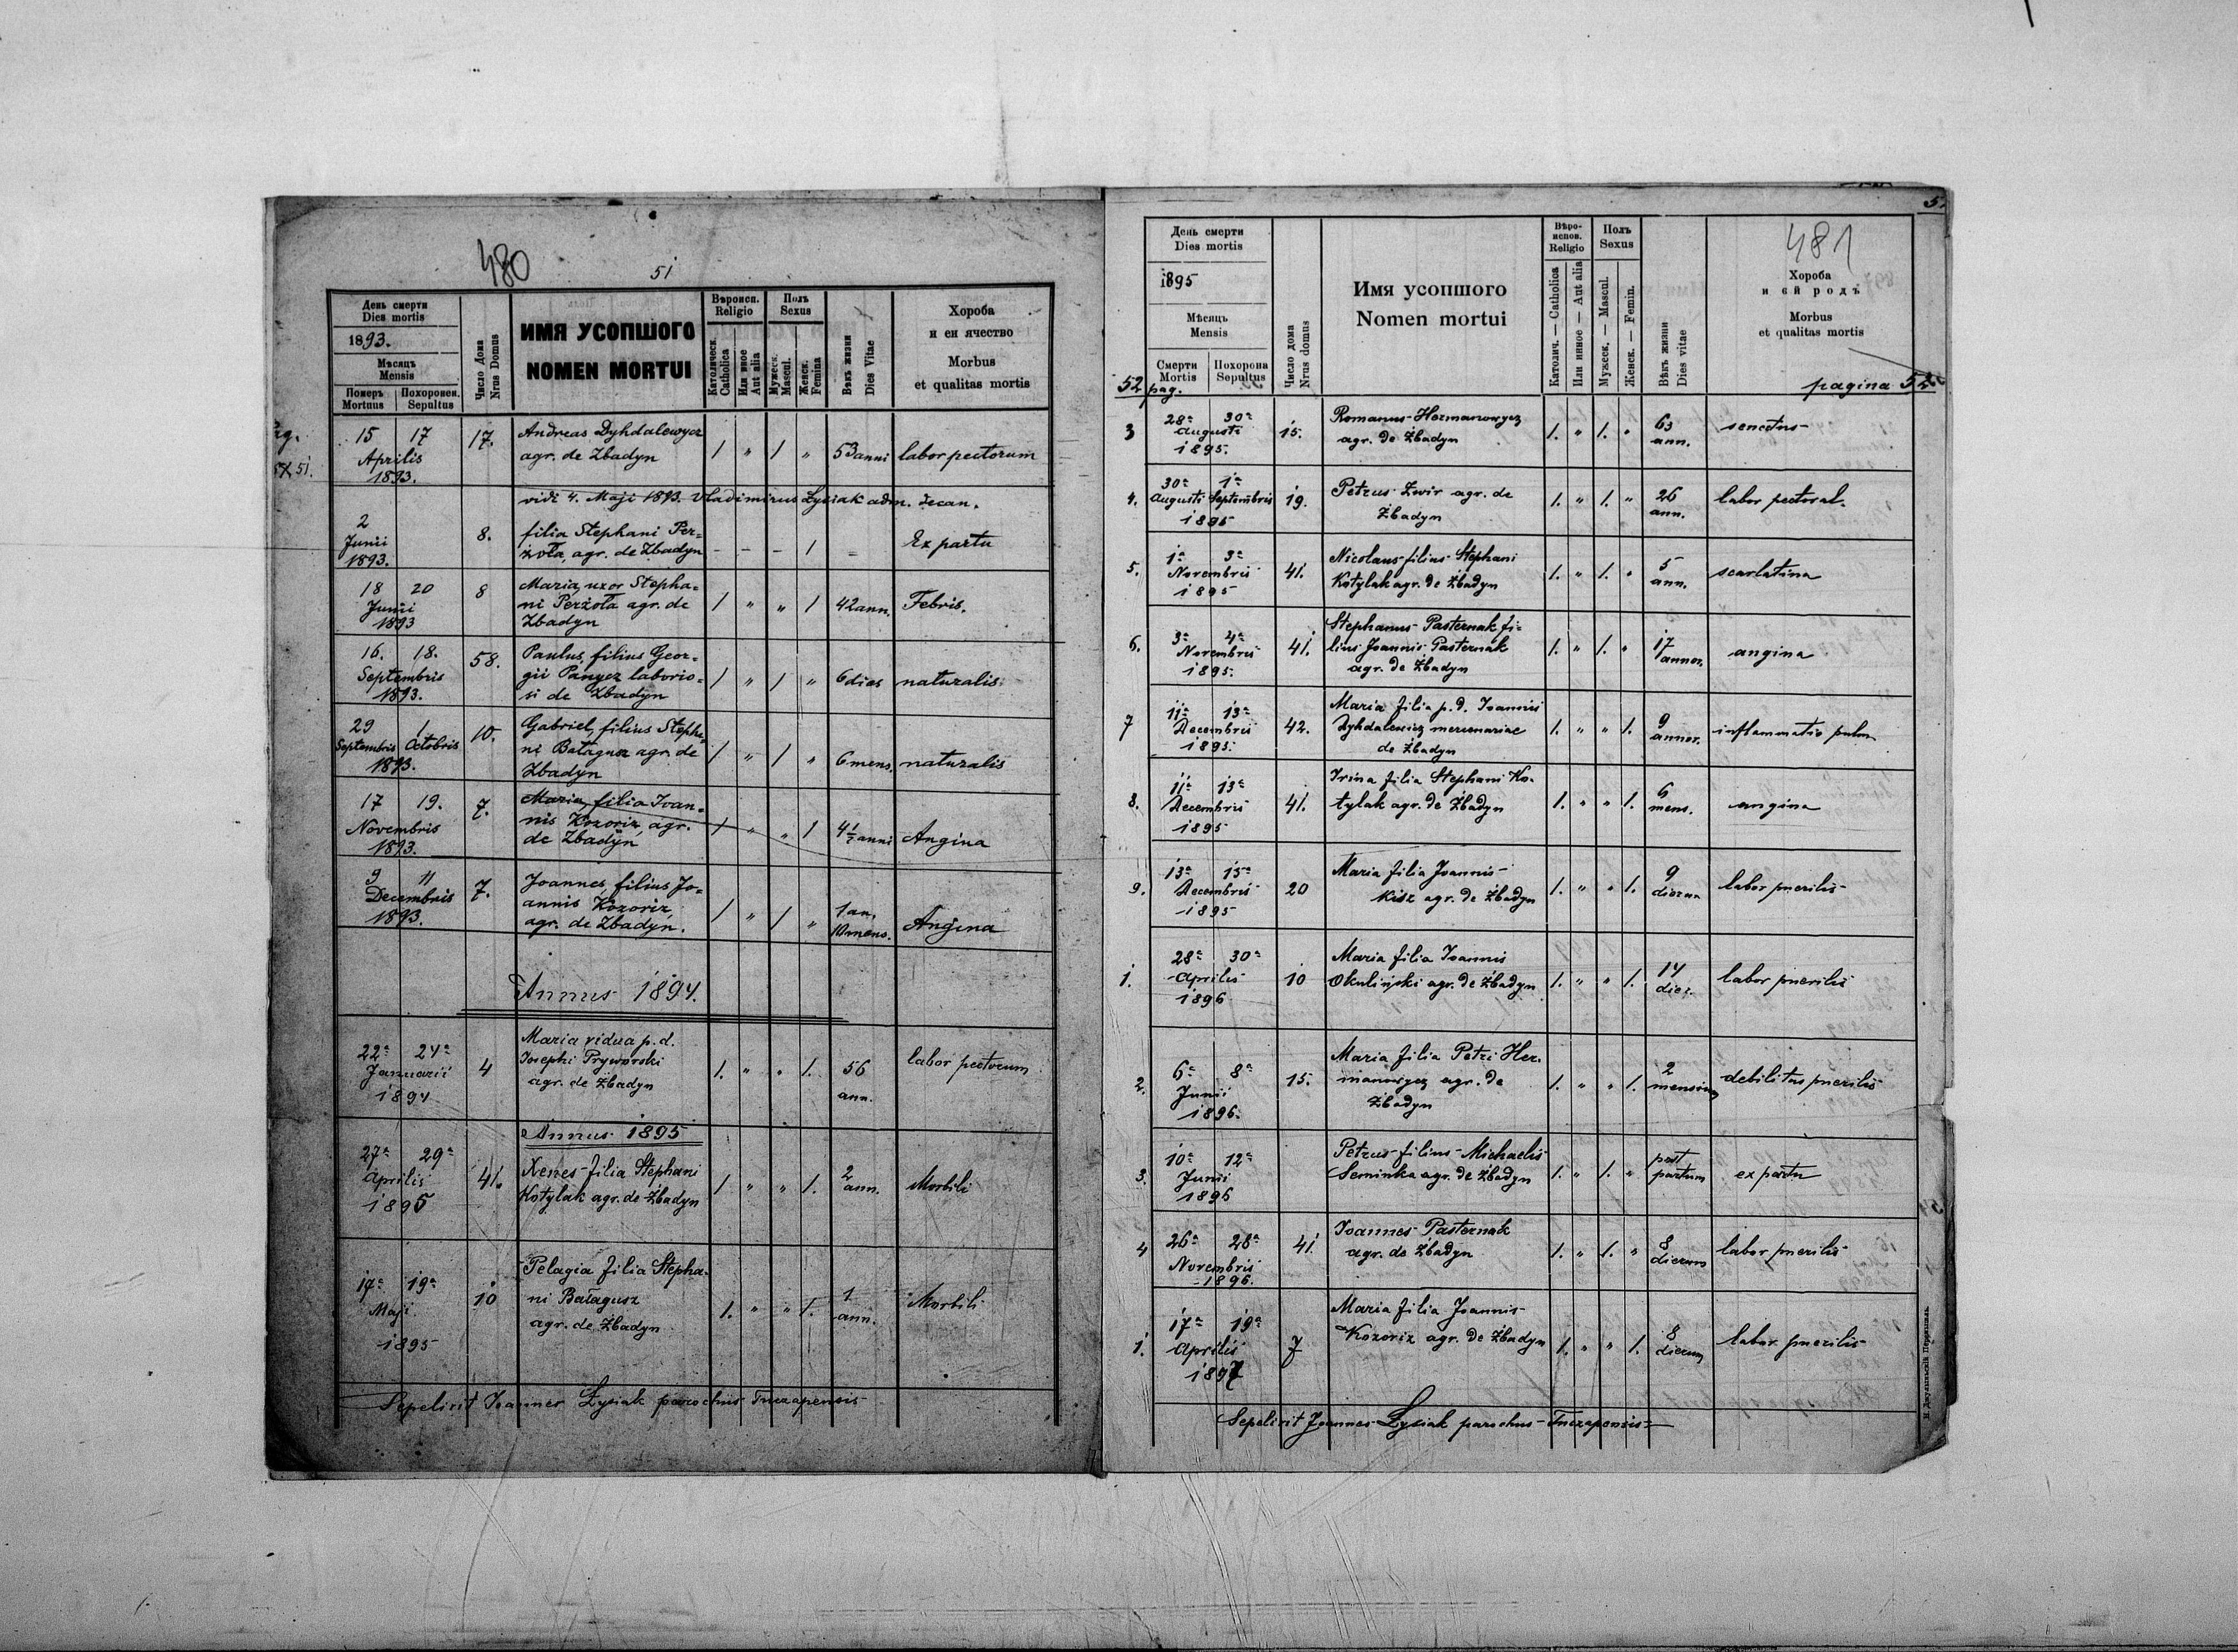 480
51
День смерти
Dies mortis
1893.
Мѣсяцъ
Mensis
Померъ
Mortuus
Похоронен.
Sepultus
Число Дома
Nrus Domus
ИМЯ УСОПШОГО
NOMEN MORTUI
Вѣроисп.
Religio
Католическ.
Catholica
Или иное
Aut alia
Полъ
Sexus
Мужеск.
Mascul.
Женск.
Femina
Вѣкъ жизни
Dies Vitae
Хороба
и еи ячество
Morbus
et qualitas mortis
15 17 17. Andreas Dyhdalewycz
Aprilis agr. de Zbadyn 1 " 1 " 53 anni labor pectorum
1893.
vidi 4. Maji 1893. Vladimirus Łysiak adm. decan.
2 8. filia Stephani Per=
Junii żoła, agr. de Zbadyn - - - 1 = Ex partu
1893.
18 20 8 Maria, uxor Stepha=
Junii ni Perżoła agr. de 1 " " 1 42 ann. Febris.
1893 Zbadyn
16. 18. 58. Paulus, filius Geor=
Septembris gii Panycz laborio= 1 " 1 " 6 dies naturalis
1893. si de Zbadyn
29 1 10. Gabriel, filius Stepha=
Septembris Octobris ni Bałagusz agr. de 1 " 1 " 6 mens. naturalis
1893. Zbadyn
17 19. 7. Maria, filia Ioan=
Novembris nis Kozoriz, agr. 1 " " 1 4½ anni Angina
1893. de Zbadyn
9 11 7. Joannes, filius Jo=
Decembris annis Kozoriz, 1 " 1 " 1 an. 10 mens. Angina
1893. agr. de Zbadyn.
Annus 1894.
22a 24a 4 Maria vidua p. d.
Januarii Josephi Prywarski 1. " " 1. 56 ann. labor pectorum
1894 agr. de Zbadyn
Annus 1895
27a 29a 41. Xenes filia Stephani
Aprilis Kotylak agr. de Zbadyn 1 " " 1. 2 ann. Morbili
1895
17a 19a 10 Pelagia filia Stepha-
Maji ni Bałagusz 1. " " 1. 1 ann. Morbili
1895 agr. de Zbadyn
Sepelivit Joannes Łysiak parochus Tuczapensis
481
День смерти
Dies mortis
1895
Мѣсяцъ
Mensis
Смерти
Mortis
Похорона
Sepultus
Число дома
Nrus domus
Имя усопшого
Nomen mortui
Вѣро-
испов.
Religio
Католич. — Catholica
Или инное — Aut alia
Полъ
Sexus
Мужеск. — Mascul.
Женск. — Femin.
Вѣкъ жизни
Dies vitae
Хороба
и єй родъ
Morbus
et qualitas mortis
52 pag.
pagina 52
3 28a 30a 15. Romanus Hermanowycz
Augusti agr. de Zbadyn 1. " 1. " 63 ann. senectus
1895.
4. 30a 1a 19. Petrus Zwir agr. de
Augusti Septembris Zbadyn 1. " 1. " 26 ann. labor pectoral.
1895
5. 1a 3a 41. Nicolaus filius Stephani
Novembris Kotylak agr. de Zbadyn 1. " 1. " 5 ann. scarlatina
1895
6. 3a 4a 41. Stephanus Pasternak fi-
Novembris lius Joannis Pasternak 1. " 1. " 17 annor. angina
1895. agr. de Zbadyn
7 11a 13a 42. Maria filia p. d. Ioannis
Decembris Dyhdalewicz mercenariae 1. " " 1. 9 annor. inflammatio pulm.
1895. de Zbadyn
8. 11a 13a 41. Irina filia Stephani Ko-
Decembris tylak agr. de Zbadyn 1. " " 1. 6 mens. angina
1895
9. 13a 15a 20 Maria filia Joannis
Decembris Kisz agr. de Zbadyn 1. " " 1. 9 dierum labor puerilis
1895
1. 28a 30a 10 Maria filia Ioannis
Aprilis Okuliński agr. de Zbadyn 1. " " 1. 14 dier. labor puerilis
1896
2. 6a 8a 15. Maria filia Petri Her-
Junii manowycz agr. de 1. " " 1. 2 mensium debilitas puerilis
1896. Zbadyn
3. 10a 12a Petrus filius Michaelis
Junii Seminka agr. de Zbadyn 1. " 1. " post partum ex partu
1896
4 26a 28a 41. Ioannes Pasternak
Novembris agr. de Zbadyn 1. " 1. " 8 dierum labor puerilis
1896.
1. 17a 19a 7 Maria filia Joannis
Aprilis Kozoriz agr. de Zbadyn 1. " " 1. 8 dierum labor puerilis
1897
Sepelivit Joannes Łysiak parochus Tuczapensis